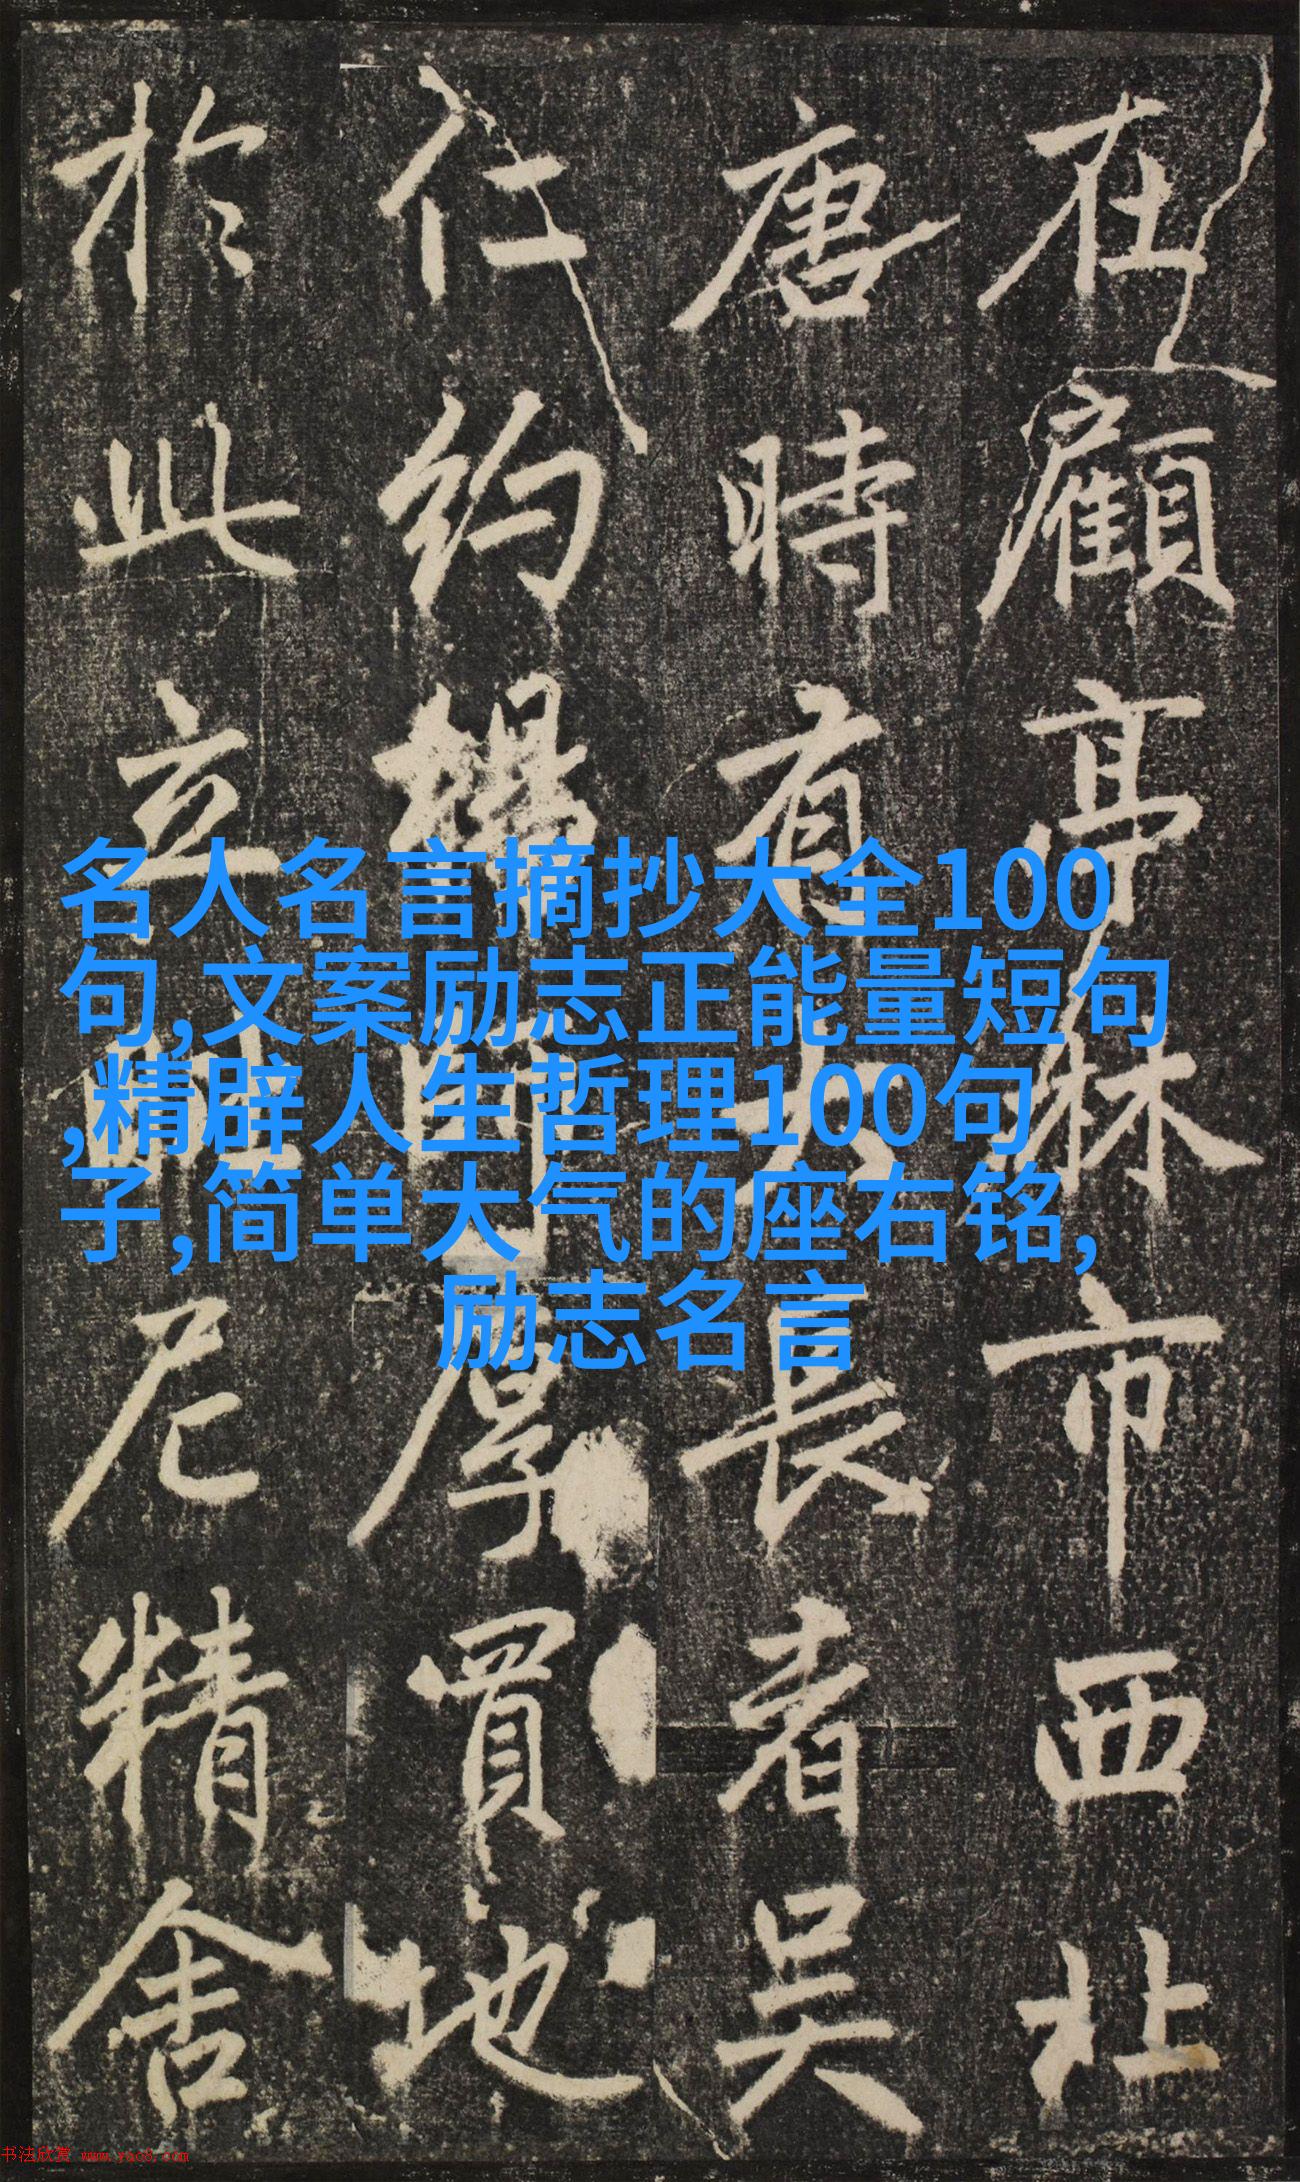 在顧亭林市西北
唐時有大長者吳
仁約捐厚買地
於此立尼精舍
名人名言摘抄大全100
句,文案励志正能量短句
,精辟人生哲理100句
子,简单大气的座右铭,
励志名言
书法欣赏 www.yac8.com